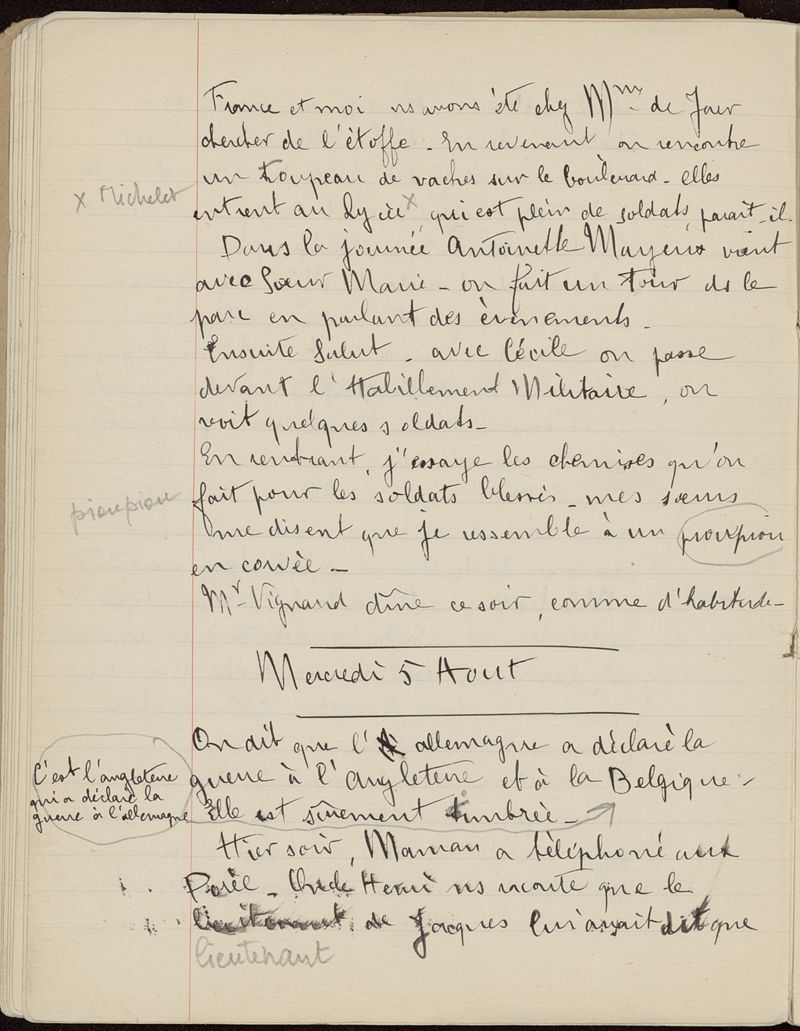 France et moi ns avons été chez Mme de
chercher de l'étoffe - En revenant on rencontre
un troupeau de vaches sur le boulevard - elles
x Michelet
entrent au Lycée x qui est plein de soldats, parait-il.
Dans la journée Antoinette Mayeux vient
avec Sœur Marie - on fait un tour ds le
parc en parlant des évènements -
Ensuite Salut - avec Cécile on passe
devant l'Habillement Militaire, on
voit quelques soldats -
En rentrant, j'essaye les chemises qu'on
fait pour les soldats blessés - mes sœurs
pioupiou
me disent que je ressemble à un pioupiou
en corvée -
Mr Vignaud dîne ce soir, comme d'habitude -
Mercredi 5 Aout
On dit que l'allemagne a déclaré la
guerre à l'Angleterre et à la Belgique -
Elle est sûrement timbrée -
C'est l'angleterre
qui a déclaré la
guerre à l'allemagne
Hier soir, Maman a téléphoné aux
Porée - Oncle Henri ns raconte que le
lieutenant de Jacques lui avait dit que
lieutenant